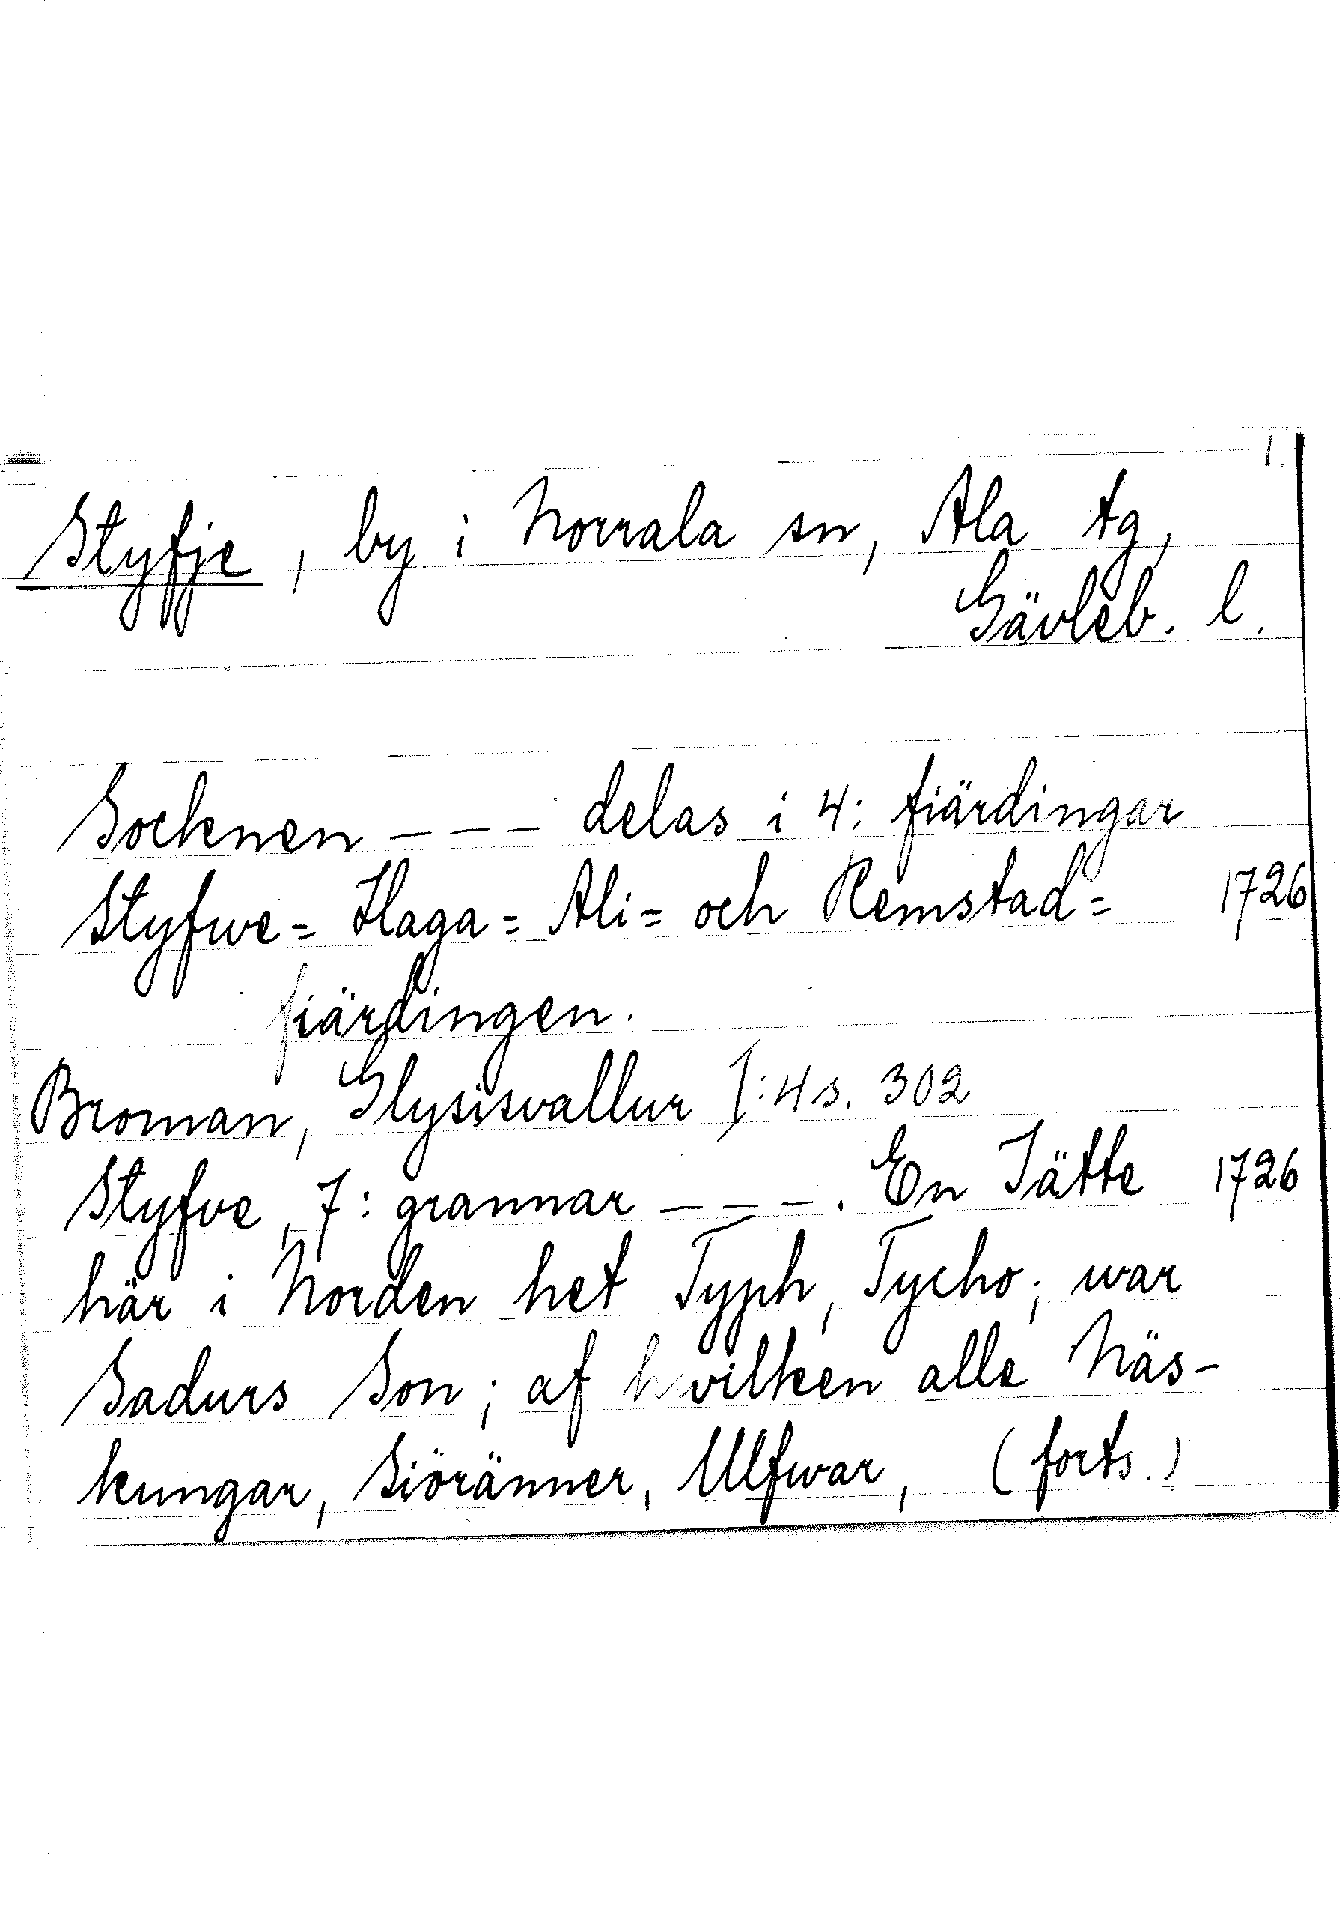 1.
Styfje, by i Norrala sn, Ala tg,
Gävleb. l.
Socknen --- delas i 4: fiärdingar
Styfwe= Haga= Ali= och Remstad= 1726
fiärdingen.
Broman, Glysisvallur I:4 s. 302
Styfve, 7: grannar ---. En Jätte 1726
här i Norden het Typh, Tycho; war
Sadurs Son; af hvilken alle Näs-
kungar, Siöränner, Ulfwar, (forts.)